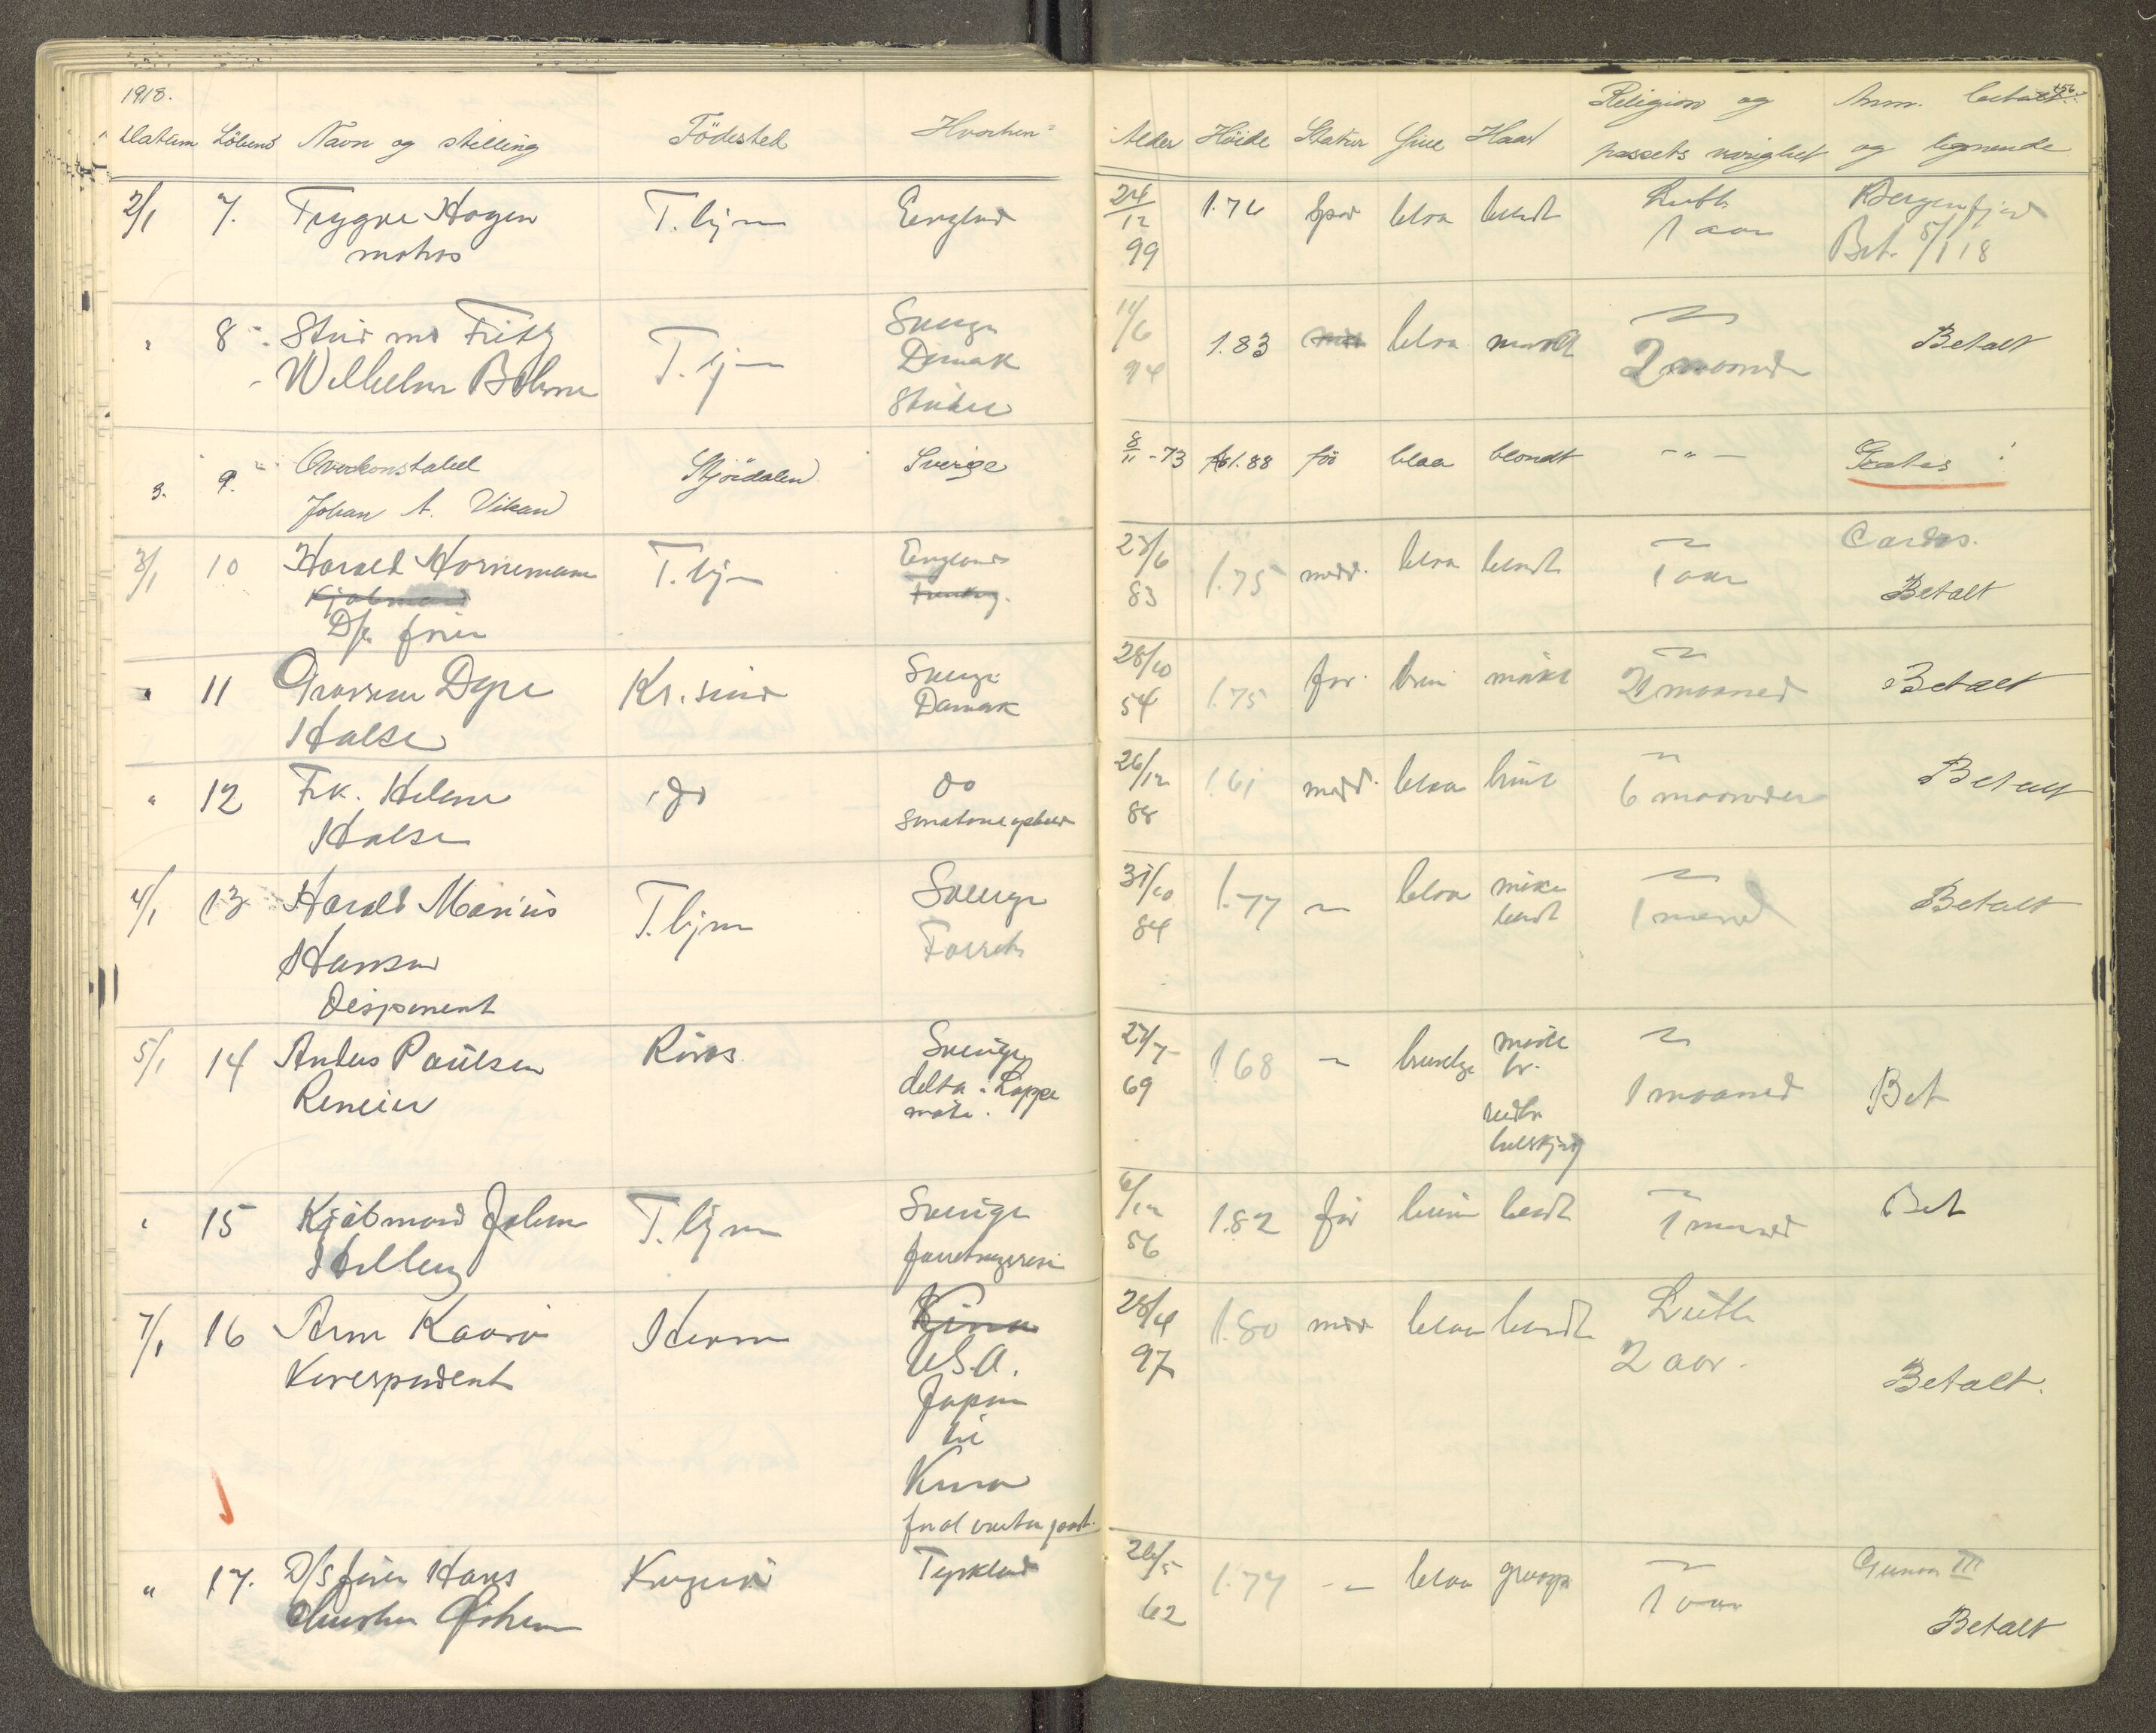 1918.
Datum Löbenº Navn og stilling Födested Hvorhen
Alder Höide Statur Öine Haar Religion og passets varighet Anm. betalt og lignende
456.
2/1 7. Trygve Hagen T.hjem England 24/12 99 1.76 spæd blaa blondt Luth. Bergensfjord
matros 1 aar Bet. 5/1 18
" 8 Stud med Fritz T.hjem Sverige 11/6 94 1.83 blaa mørkt Betalt
Wilhelm Böhme Danmark 2 maaneder
Studier
3. 9. Overkonstabel Stjördalen Sverige 8/11-73 1.88 för blaa blondt - " - Gratis
Johan A. Vikan
3/1 10 Harald Hornemann T.hjem England 23/6 83 1.75 midd. blaa blondt 1 aar Cardos.
Kjøbmand
D/s förer Betalt
" 11 Grosserer Dyre Kr.sund Sverige 28/10 54 1.75 för brun mörkt 2 maaned Betalt
Halse Danmark
" 12 Frk. Helene do do 26/12 88 1.61 midd. blaa brunt 6 maaneder Betalt
Halse
4/1 13 Harald Marius T.hjem Sverige 31/10 84 1.77 blaa mörke blondt 1 maaned Betalt
Hansen Forretn
Disponent
5/1 14 Anders Paulsen Röros Sverige 27/7 69 1.68 brunlige mörke br. 1 maaned Bet
Reneier delta i Lappe
möte.
" 15 Kjöbmand Johan T.hjem Sverige 6/12 56 1.82 för brune blondt 1 maaned Bet
forretningsreise
7/1 16 Arne Kaarø Kina 28/4 97 1.80 mid blaa blondt Luth
Korrespondent U.S.A. 2 aar. Betalt.
Japan
til
Kina
" 17. D/S förer Hans Kragerö Tyskland 26/5 62 1.77 blaa 1 aar Gunvor III
Betalt